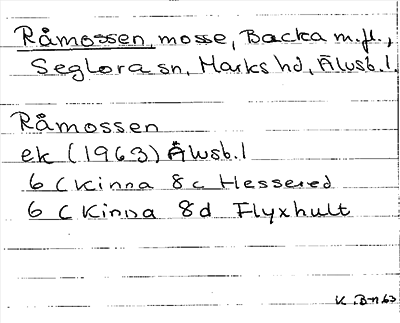 Råmossen, mosse, Backa m.fl.,
Seglora sn, Marks hd, Älvsb.l.
Råmossen
ek (1963) Älvsb.l
6 C Kinna 8c Hessered
6 C Kinna 8d Flyxhult
K B-n 63